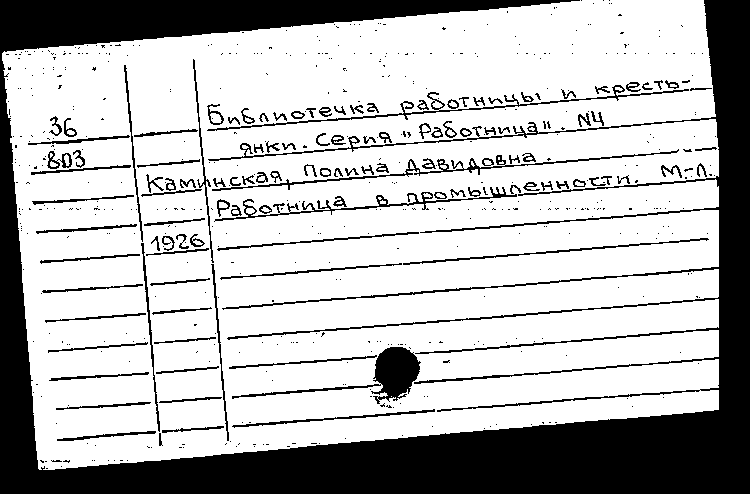 Библиотечка работницы и кресть-
36
янки. Серия "Работница". №4
803
Каминская, Полина Давидовна.
Работница в промышленности. М.-Л.,
1926